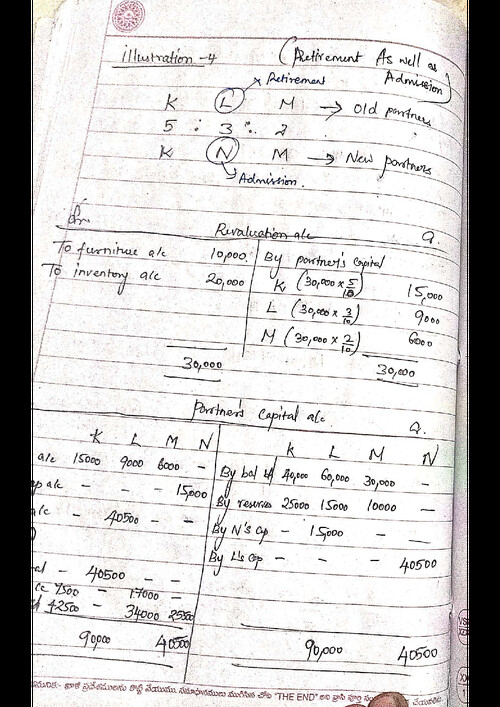 Illustration - 4
(Retirement As well as Admission)
Retirement
K L M → Old partners
5 : 3 : 2
K N M → New partners
Admission
Dr. Revaluation a/c Cr.
To furniture a/c 10,000 By partner's capital
To inventory a/c 20,000 K (30,000 × 5/10) 15,000
L (30,000 × 3/10) 9000
M (30,000 × 2/10) 6000
30,000 30,000
Partner's Capital a/c Cr.
K L M N K L M N
a/c 15000 9000 6000 - By bal b/f 40,000 60,000 30,000 -
ap a/c - - - 15,000 By reserves 25000 15000 10000 -
a/c - 40500 - - By N's Cap - 15,000 - -
By L's Cap - - - 40500
al - 40500 - -
7500 - 17000 -
42500 - 34000 25500
90,000 40500 90,000 40500
"THE END"